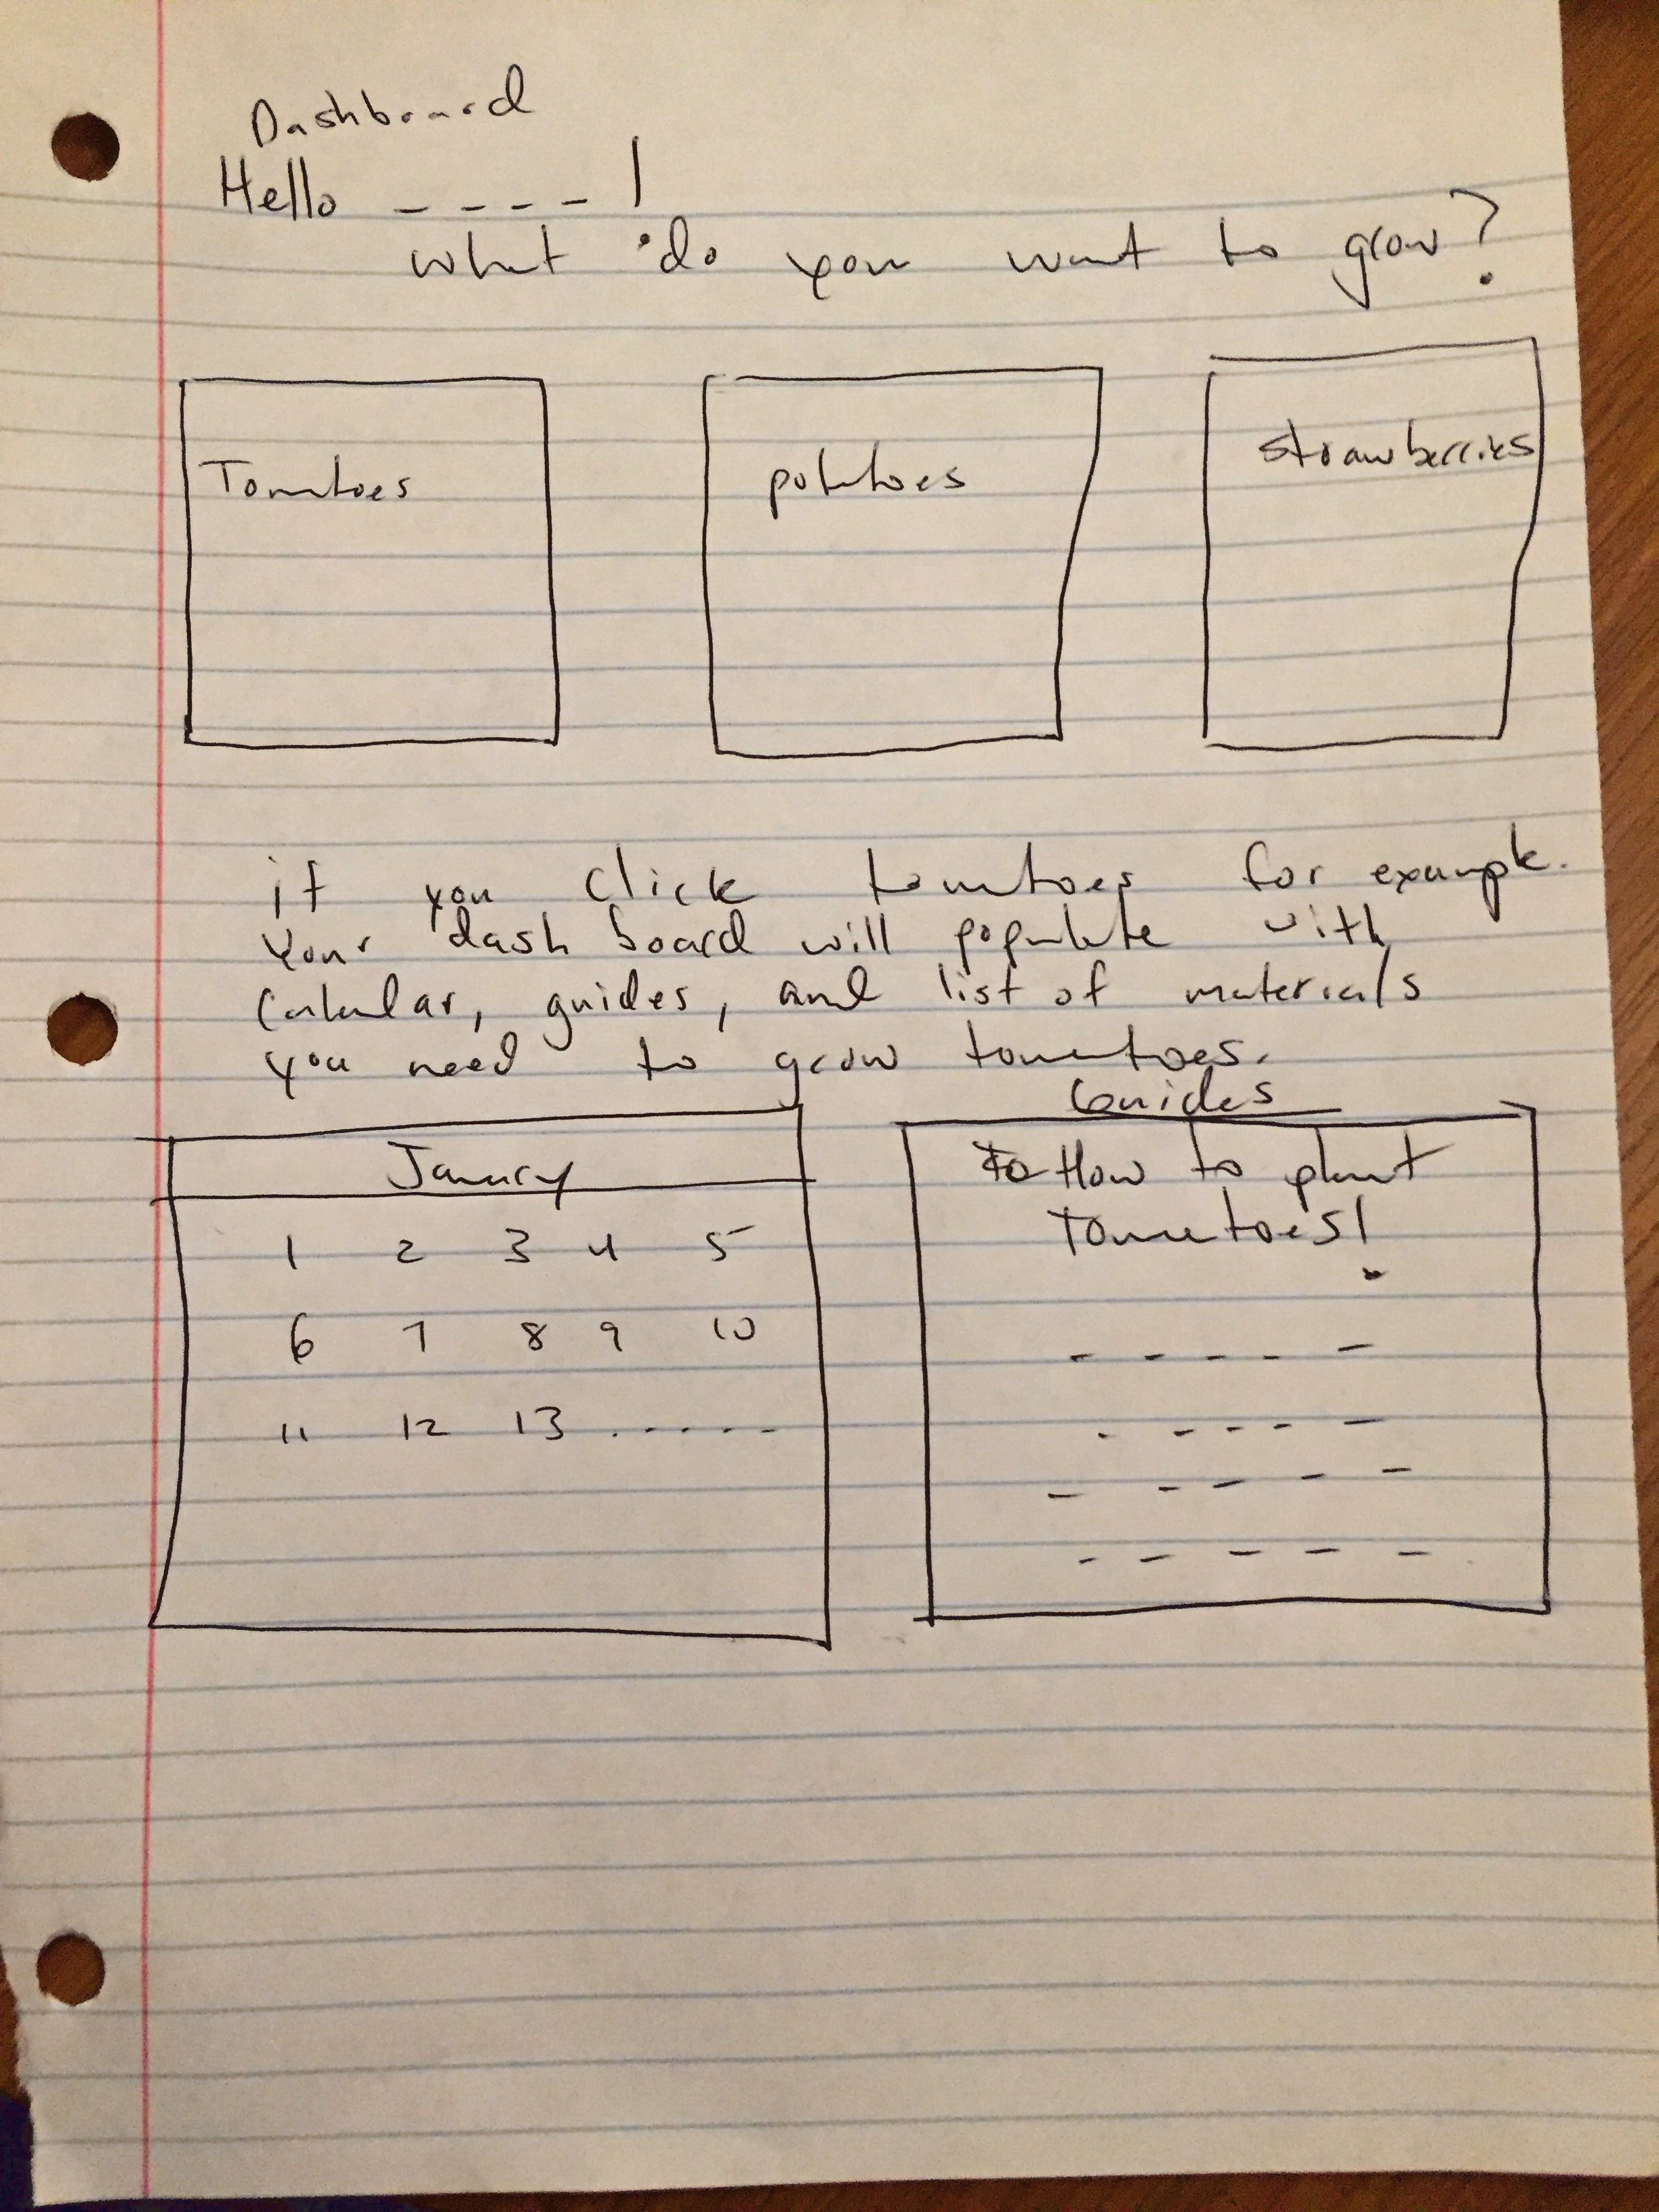 Dashboard
Hello _ _ _ _ !
what do you want to grow?
Tomatoes
potatoes
strawberries
if you click tomatoes for example.
Your dash board will populate with
calendar, guides, and list of materials
you need to grow tomatoes.
Guides
January
1 2 3 4 5
6 7 8 9 10
11 12 13 . . . . . .
How to plant
Tomatoes!